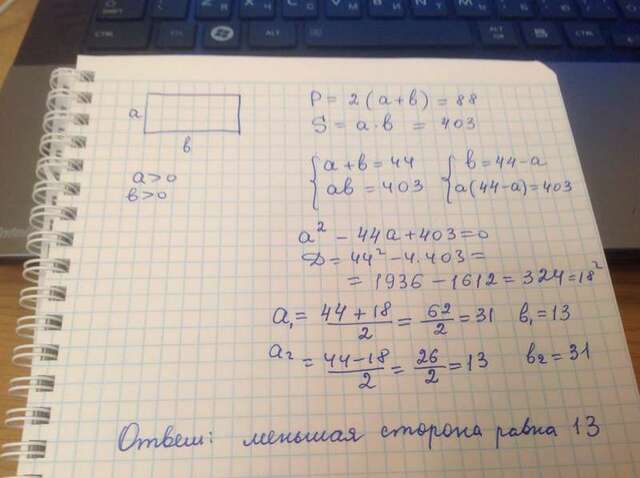 a
в
a>0
в>0
P = 2(a+в) = 88
S = a·в = 403
{a+в=44 {в=44-a
{aв=403 {a(44-a)=403
a² - 44a+403=0
D=44²-4·403=
= 1936-1612=324=18²
a₁= (44+18)/2 = 62/2 =31 в₁=13
a₂ = (44-18)/2 = 26/2 =13 в₂=31
Ответ: меньшая сторона равна 13